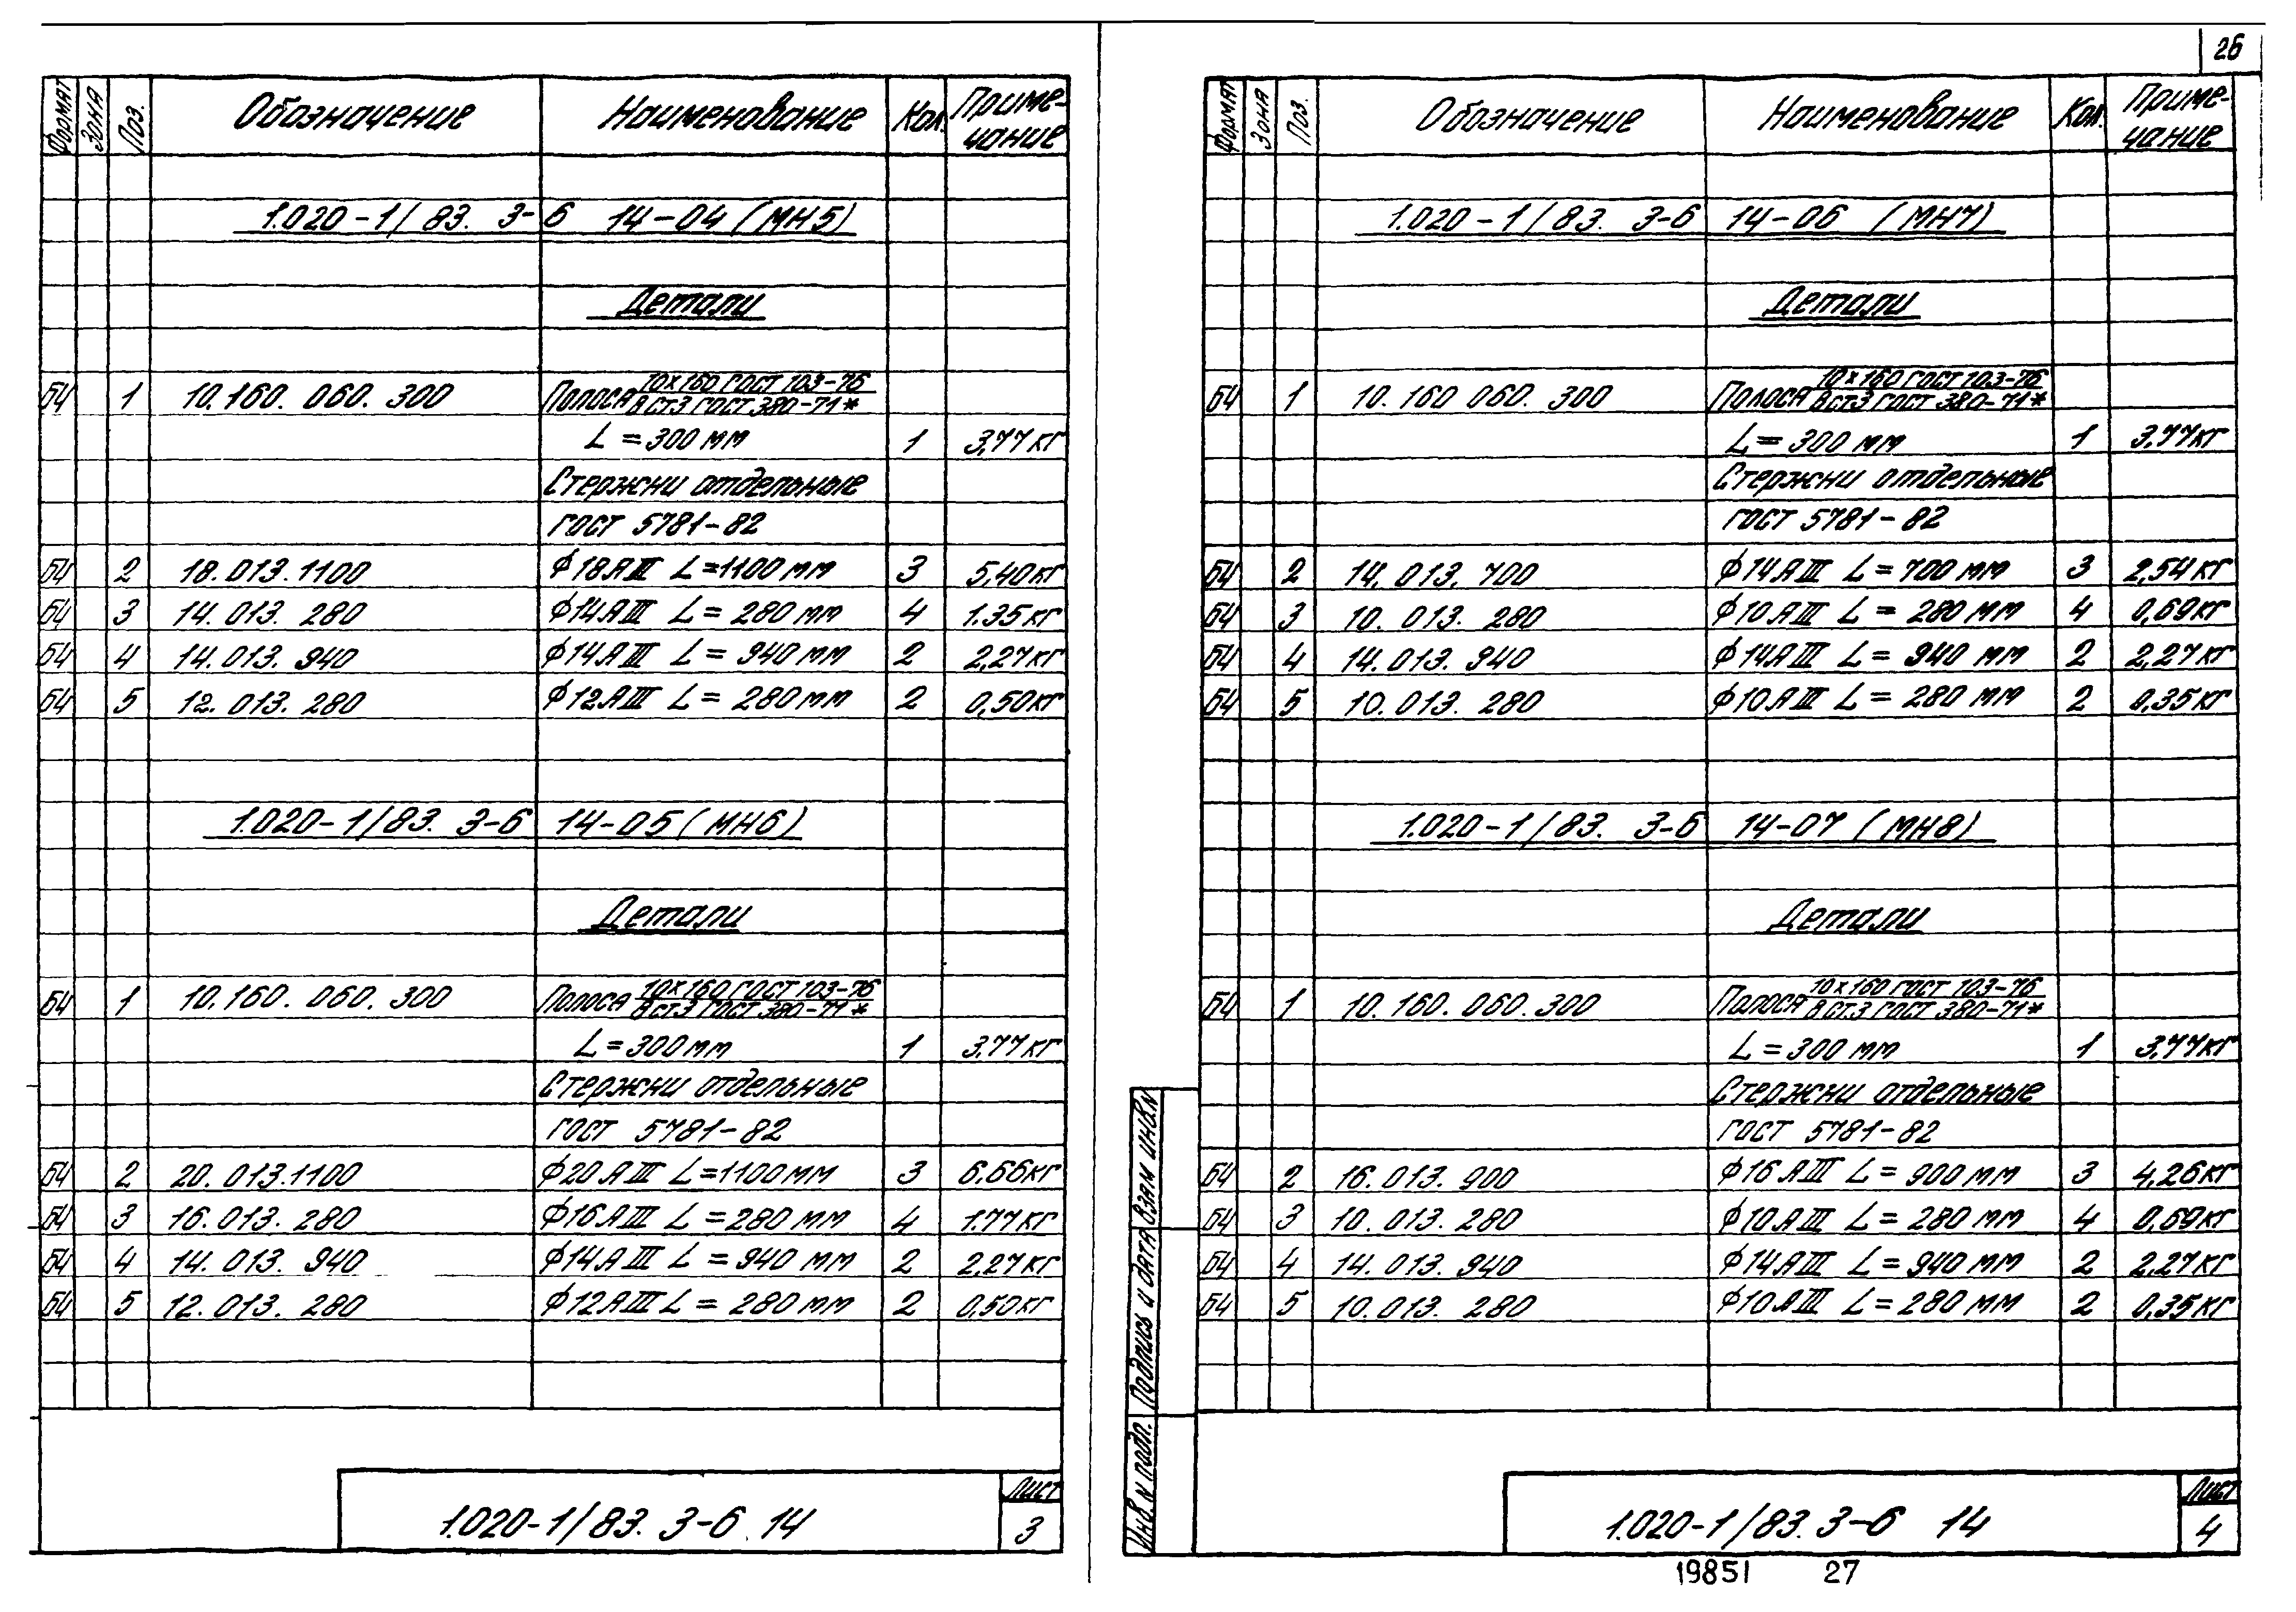 26
Формат Зона Поз. Обозначение Наименование Кол. Приме-
чание
1.020-1/83. 3-6 14-04 (МН5)
Детали
БЧ 1 10.160. 060. 300 Полоса 10×160 ГОСТ 103-76
В Ст3 ГОСТ 380-71*
L = 300 мм 1 3,77 кг
Стержни отдельные
ГОСТ 5781-82
БЧ 2 18.013.1100 ф18АIII L=1100 мм 3 5,40 кг
БЧ 3 14.013. 280 ф14АIII L= 280 мм 4 1.35 кг
БЧ 4 14.013. 940 ф14АIII L= 940 мм 2 2,27 кг
БЧ 5 12.013. 280 ф12АIII L= 280 мм 2 0,50 кг
1.020-1/83. 3-6 14-05 (МН6)
Детали
БЧ 1 10.160. 060. 300 Полоса 10×160 ГОСТ 103-76
В ст.3 ГОСТ 380-71*
L = 300 мм 1 3.77 кг
Стержни отдельные
ГОСТ 5781-82
БЧ 2 20.013.1100 ф20АIII L=1100 мм 3 6.66 кг
БЧ 3 16.013. 280 ф16АIII L=280 мм 4 1.77 кг
БЧ 4 14.013. 940 ф14АIII L =940 мм 2 2,27 кг
БЧ 5 12.013. 280 ф12АIII L= 280 мм 2 0,50 кг
1.020-1/83. 3-6 14
Лист
3
Формат Зона Поз. Обозначение Наименование Кол. Приме-
чание
1.020-1/83. 3-6 14-06 (МН7)
Детали
БЧ 1 10.160 060. 300 Полоса 10×160 ГОСТ 103-76
В ст3 ГОСТ 380-71*
L = 300 мм 1 3.77 кг
Стержни отдельные
ГОСТ 5781-82
БЧ 2 14.013. 700 ф14АIII L= 700 мм 3 2,54 кг
БЧ 3 10. 013. 280 ф10АIII L= 280 мм 4 0,69 кг
БЧ 4 14.013. 940 ф14АIII L= 940 мм 2 2,27 кг
БЧ 5 10.013. 280 ф10АIII L= 280 мм 2 0,35 кг
1.020-1/83. 3-6 14-07 (МН8)
Детали
БЧ 1 10.160.060.300 Полоса 10×160 ГОСТ 103-76
В ст.3 ГОСТ 380-71*
L = 300 мм 1 3,77 кг
Стержни отдельные
ГОСТ 5781-82
БЧ 2 16.013. 900 ф16АIII L= 900 мм 3 4,26 кг
БЧ 3 10.013. 280 ф10АIII L= 280 мм 4 0,69 кг
БЧ 4 14.013. 940 ф14АIII L= 940 мм 2 2,27 кг
БЧ 5 10.013. 280 ф10АIII L= 280 мм 2 0,35 кг
Инв. N подп. Подпись и дата Взам инв.N
1.020-1/83. 3-6 14
Лист
4
19851 27